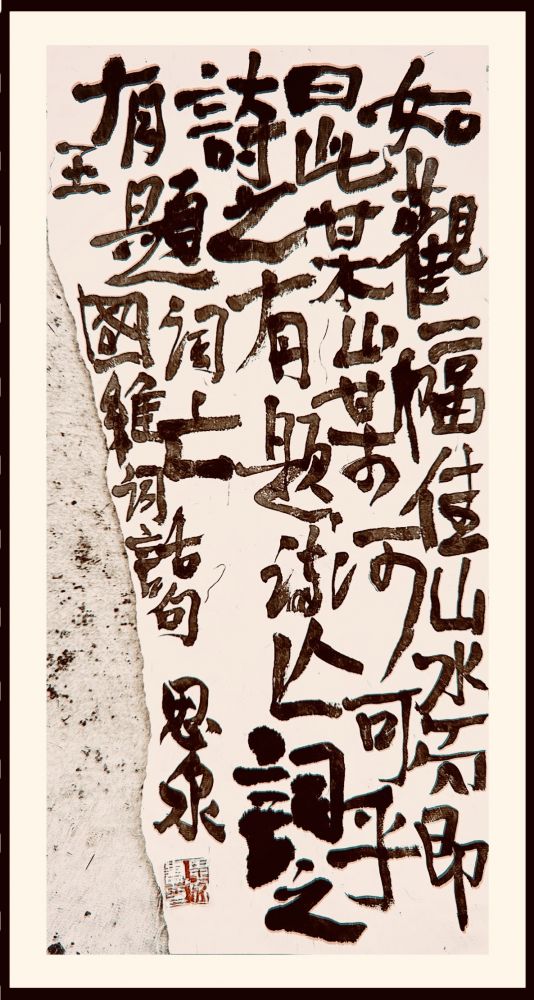 如觀一幅佳山水而即
曰此某山某河可乎
詩之有題詩亡詞之
有題詞亡
王國維詞話句
思泉